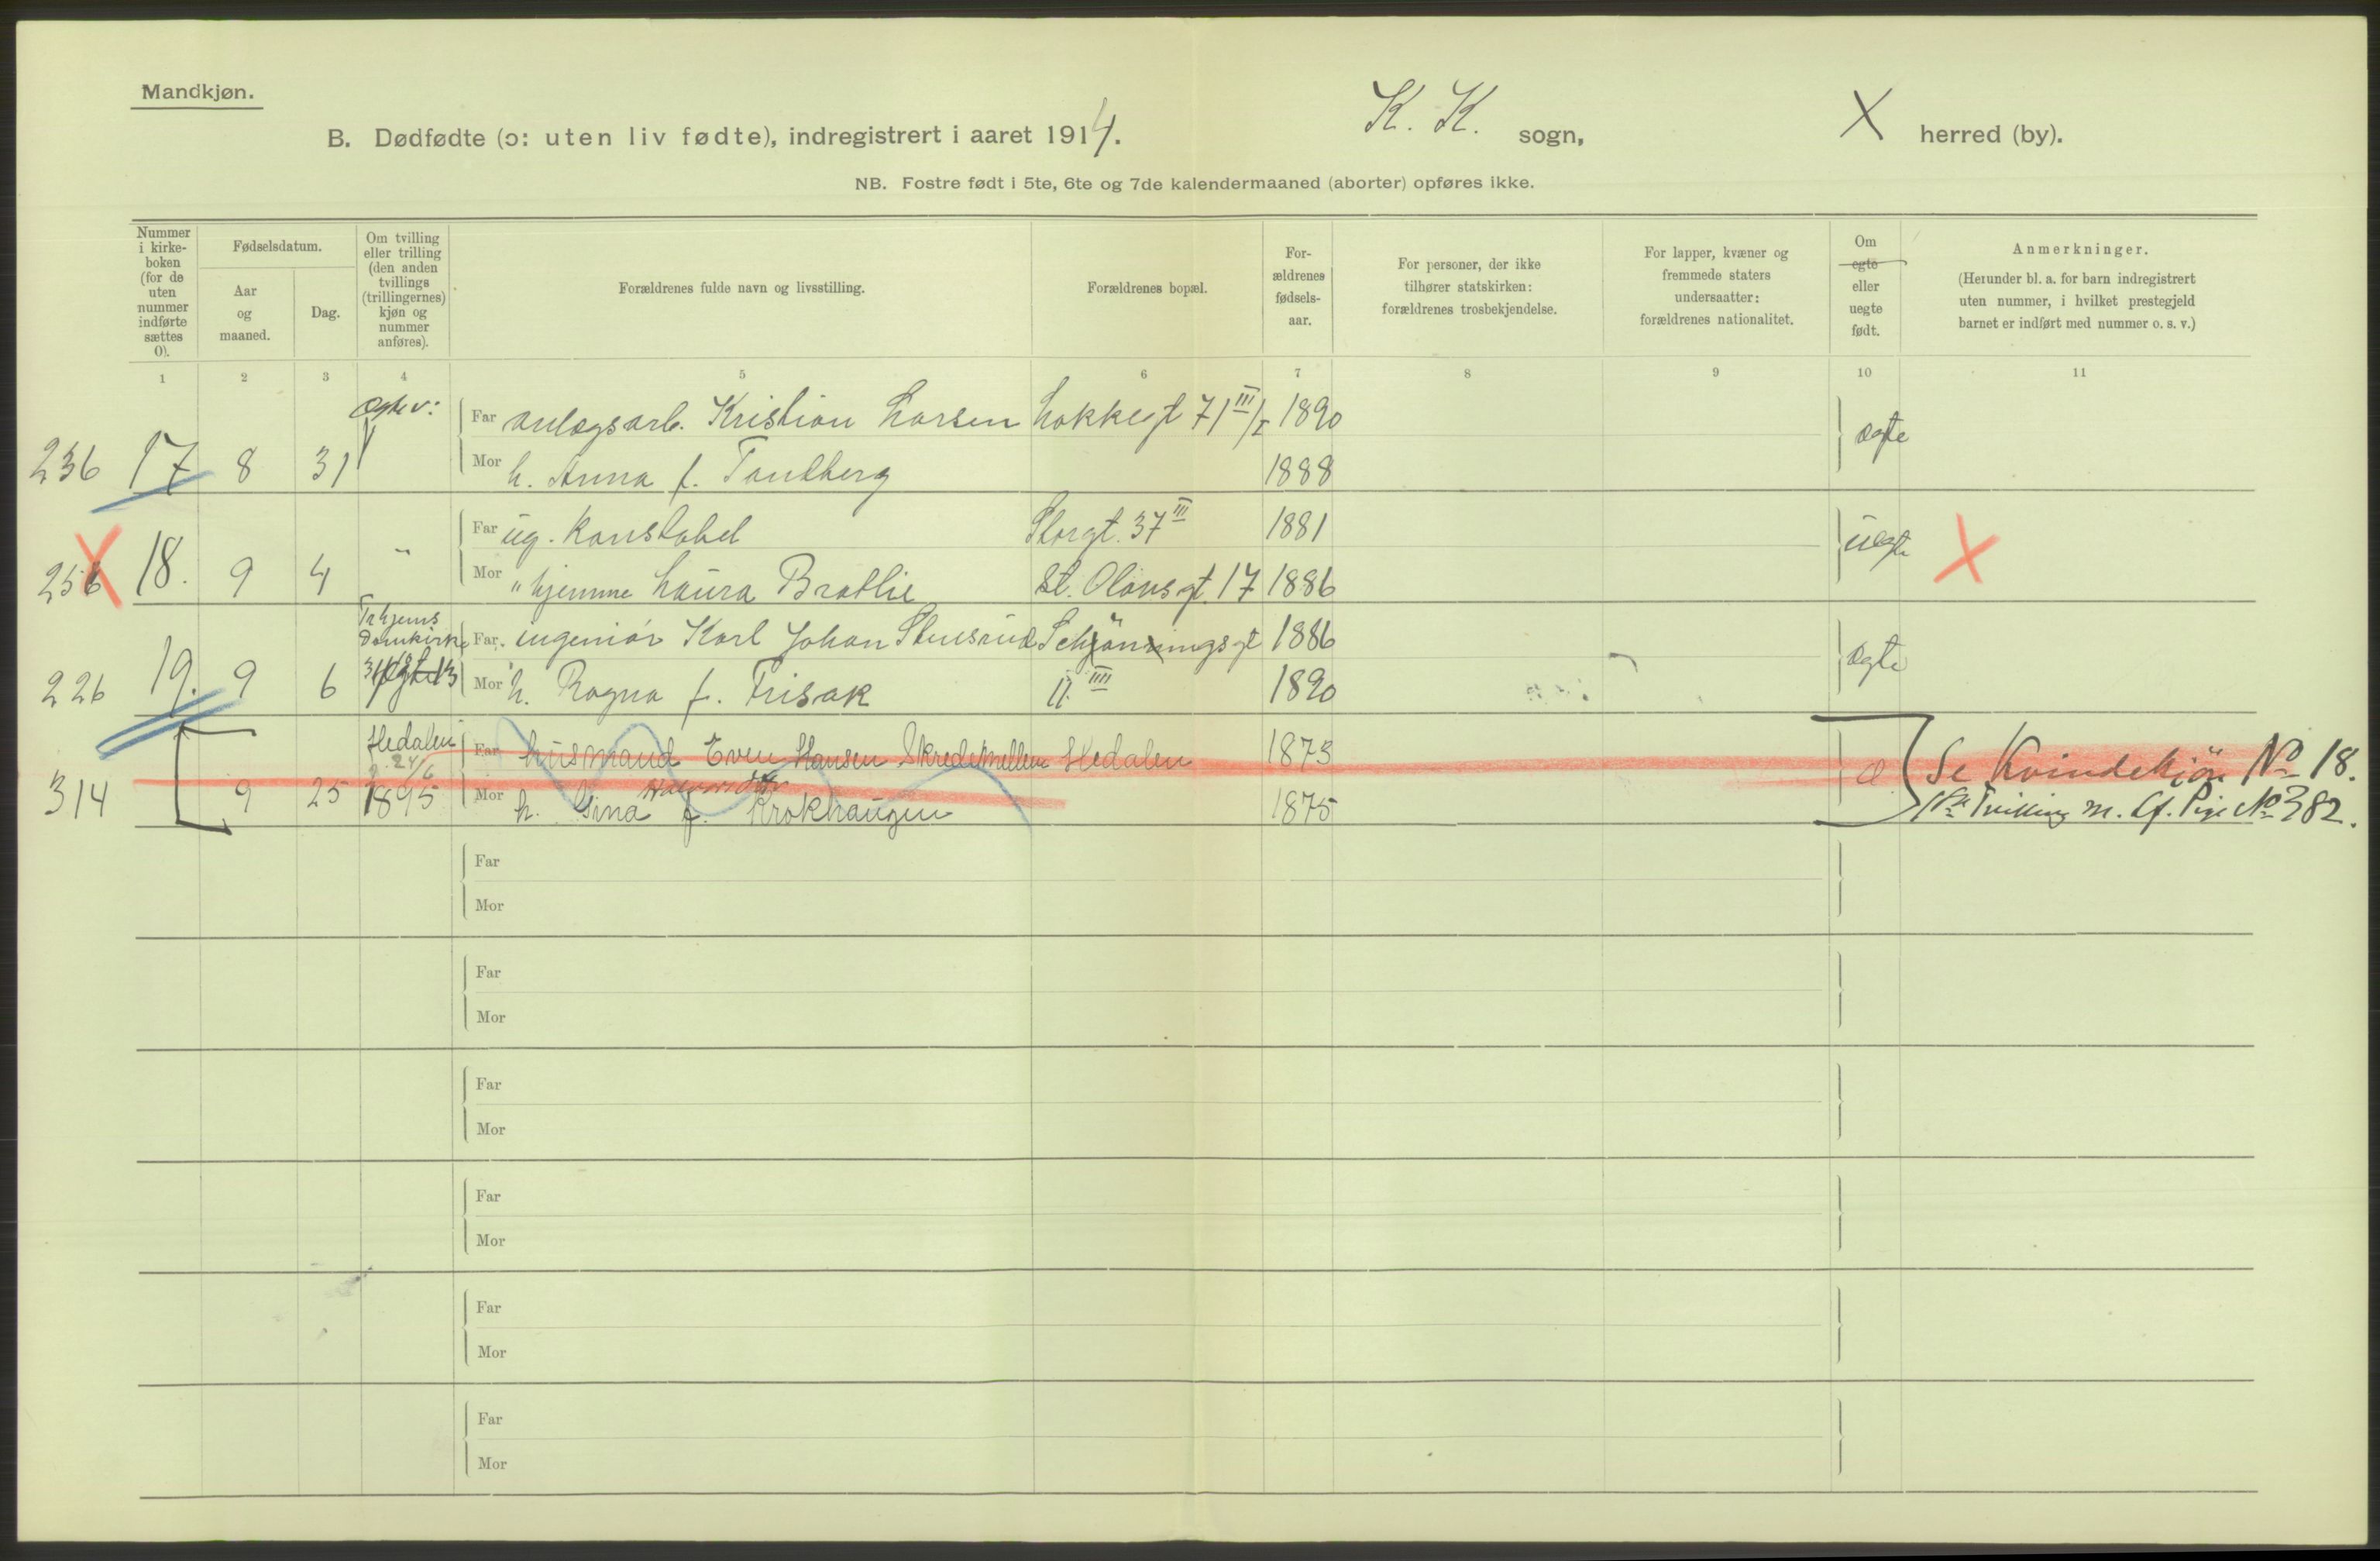 Mandkjøn.
B. Dødfødte (ɔ: uten liv fødte), indregistrert i aaret 1914.
K. K. sogn,
X herred (by).
NB. Fostre født i 5te, 6te og 7de kalendermaaned (aborter) opføres ikke.
Nummer
i kirke-
boken
(for de
uten
nummer
indførte
sættes
0).
Fødselsdatum.
Aar
og
maaned.
Dag.
Om tvilling
eller trilling
(den anden
tvillings
(trillingernes)
kjøn og
nummer
anføres).
Forældrenes fulde navn og livsstilling.
Forældrenes bopæl.
For-
ældrenes
fødsels-
aar.
For personer, der ikke
tilhører statskirken:
forældrenes trosbekjendelse.
For lapper, kvæner og
fremmede staters
undersaatter:
forældrenes nationalitet.
Om
egte
eller
uegte
født.
Anmerkninger.
(Herunder bl. a. for barn indregistrert
uten nummer, i hvilket prestegjeld
barnet er indført med nummer o. s. v.)
1 2 3 4 5 6 7 8 9 10 11
Far anlægsarb. Kristian Larsen Lakkegt 71 III/I 1890 ægte
236 17 8 31 Mor h. Anna f. Tandberg 1888
Far ug. Konstabel Storgt. 37 III 1881 uegte X
256 18. 9 4 " Mor " hjemme Laura Bratlie St. Olavsgt. 17 1886
Trhjems
Domkirke Far ingeniør Karl Johan Stensrud Schjönningsgt 1886 ægte
226 19. 9 6 Mor h. Ragna f. Frisak 11 IIII 1890
Hedalen Far husmand Even Hansen Skredemellem Hedalen 1873 æ Se Kvindekjön No 18.
24/6
Halvorsdtr
314 9 25 1895 Mor h. Gina f. Krokhaugen 1875 Tvilling m. Lf. Pige No 382.
Far
Mor
Far
Mor
Far
Mor
Far
Mor
Far
Mor
Far
Mor